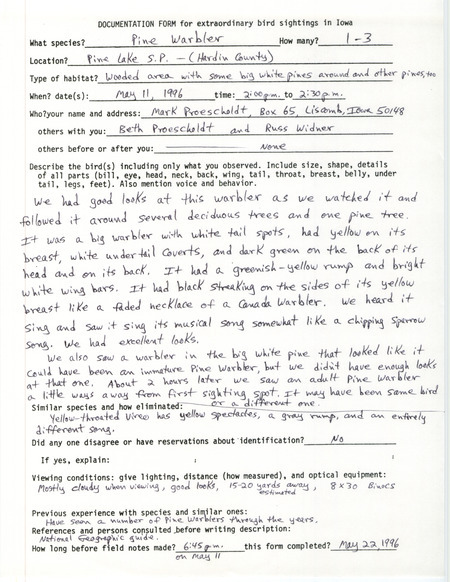 DOCUMENTATION FORM for extraordinary bird sightings in Iowa
What species? Pine Warbler How many? 1-3
Location? Pine Lake S.P. - (Hardin County)
Type of habitat? Wooded area with some big white pines around and other pines, too
When? date(s): May 11, 1996 time: 2:00 p.m. to 2:30 p.m.
Who?your name and address: Mark Proescholdt, Box 65, Liscomb, Iowa 50148
others with you: Beth Proescholdt and Russ Widner
others before or after you: None
Describe the bird(s) including only what you observed. Include size, shape, details
of all parts (bill, eye, head, neck, back, wing, tail, throat, breast, belly, under
tail, legs, feet). Also mention voice and behavior.
We had good looks at this warbler as we watched it and
followed it around several deciduous trees and one pine tree.
It was a big warbler with white tail spots, had yellow on its
breast, white undertail coverts, and dark green on the back of its
head and on its back. It had a greenish-yellow rump and bright
white wing bars. It had black streaking on the sides of its yellow
breast like a faded necklace of a Canada Warbler. We heard it
sing and saw it sing its musical song somewhat like a chipping sparrow
song. We had excellent looks.
We also saw a warbler in the big white pine that looked like it
could have been an immature Pine Warbler, but we didn't have enough looks
at that one. About 2 hours later we saw an adult Pine Warbler
a little ways away from first sighting spot. It may have been same bird
or a different one.
Similar species and how eliminated:
Yellow-throated Vireo has yellow spectacles, a gray rump, and an entirely
different song.
Did any one disagree or have reservations about identification? No
If yes, explain:
Viewing conditions: give lighting, distance (how measured), and optical equipment:
Mostly cloudy when viewing, good looks, 15-20 yards away, 8x30 Binocs
estimated
Previous experience with species and similar ones:
Have seen a number of Pine Warblers through the years.
References and persons consulted before writing description:
National Geographic guide.
How long before field notes made? 6:45 p.m. this form completed? May 22, 1996
on May 11